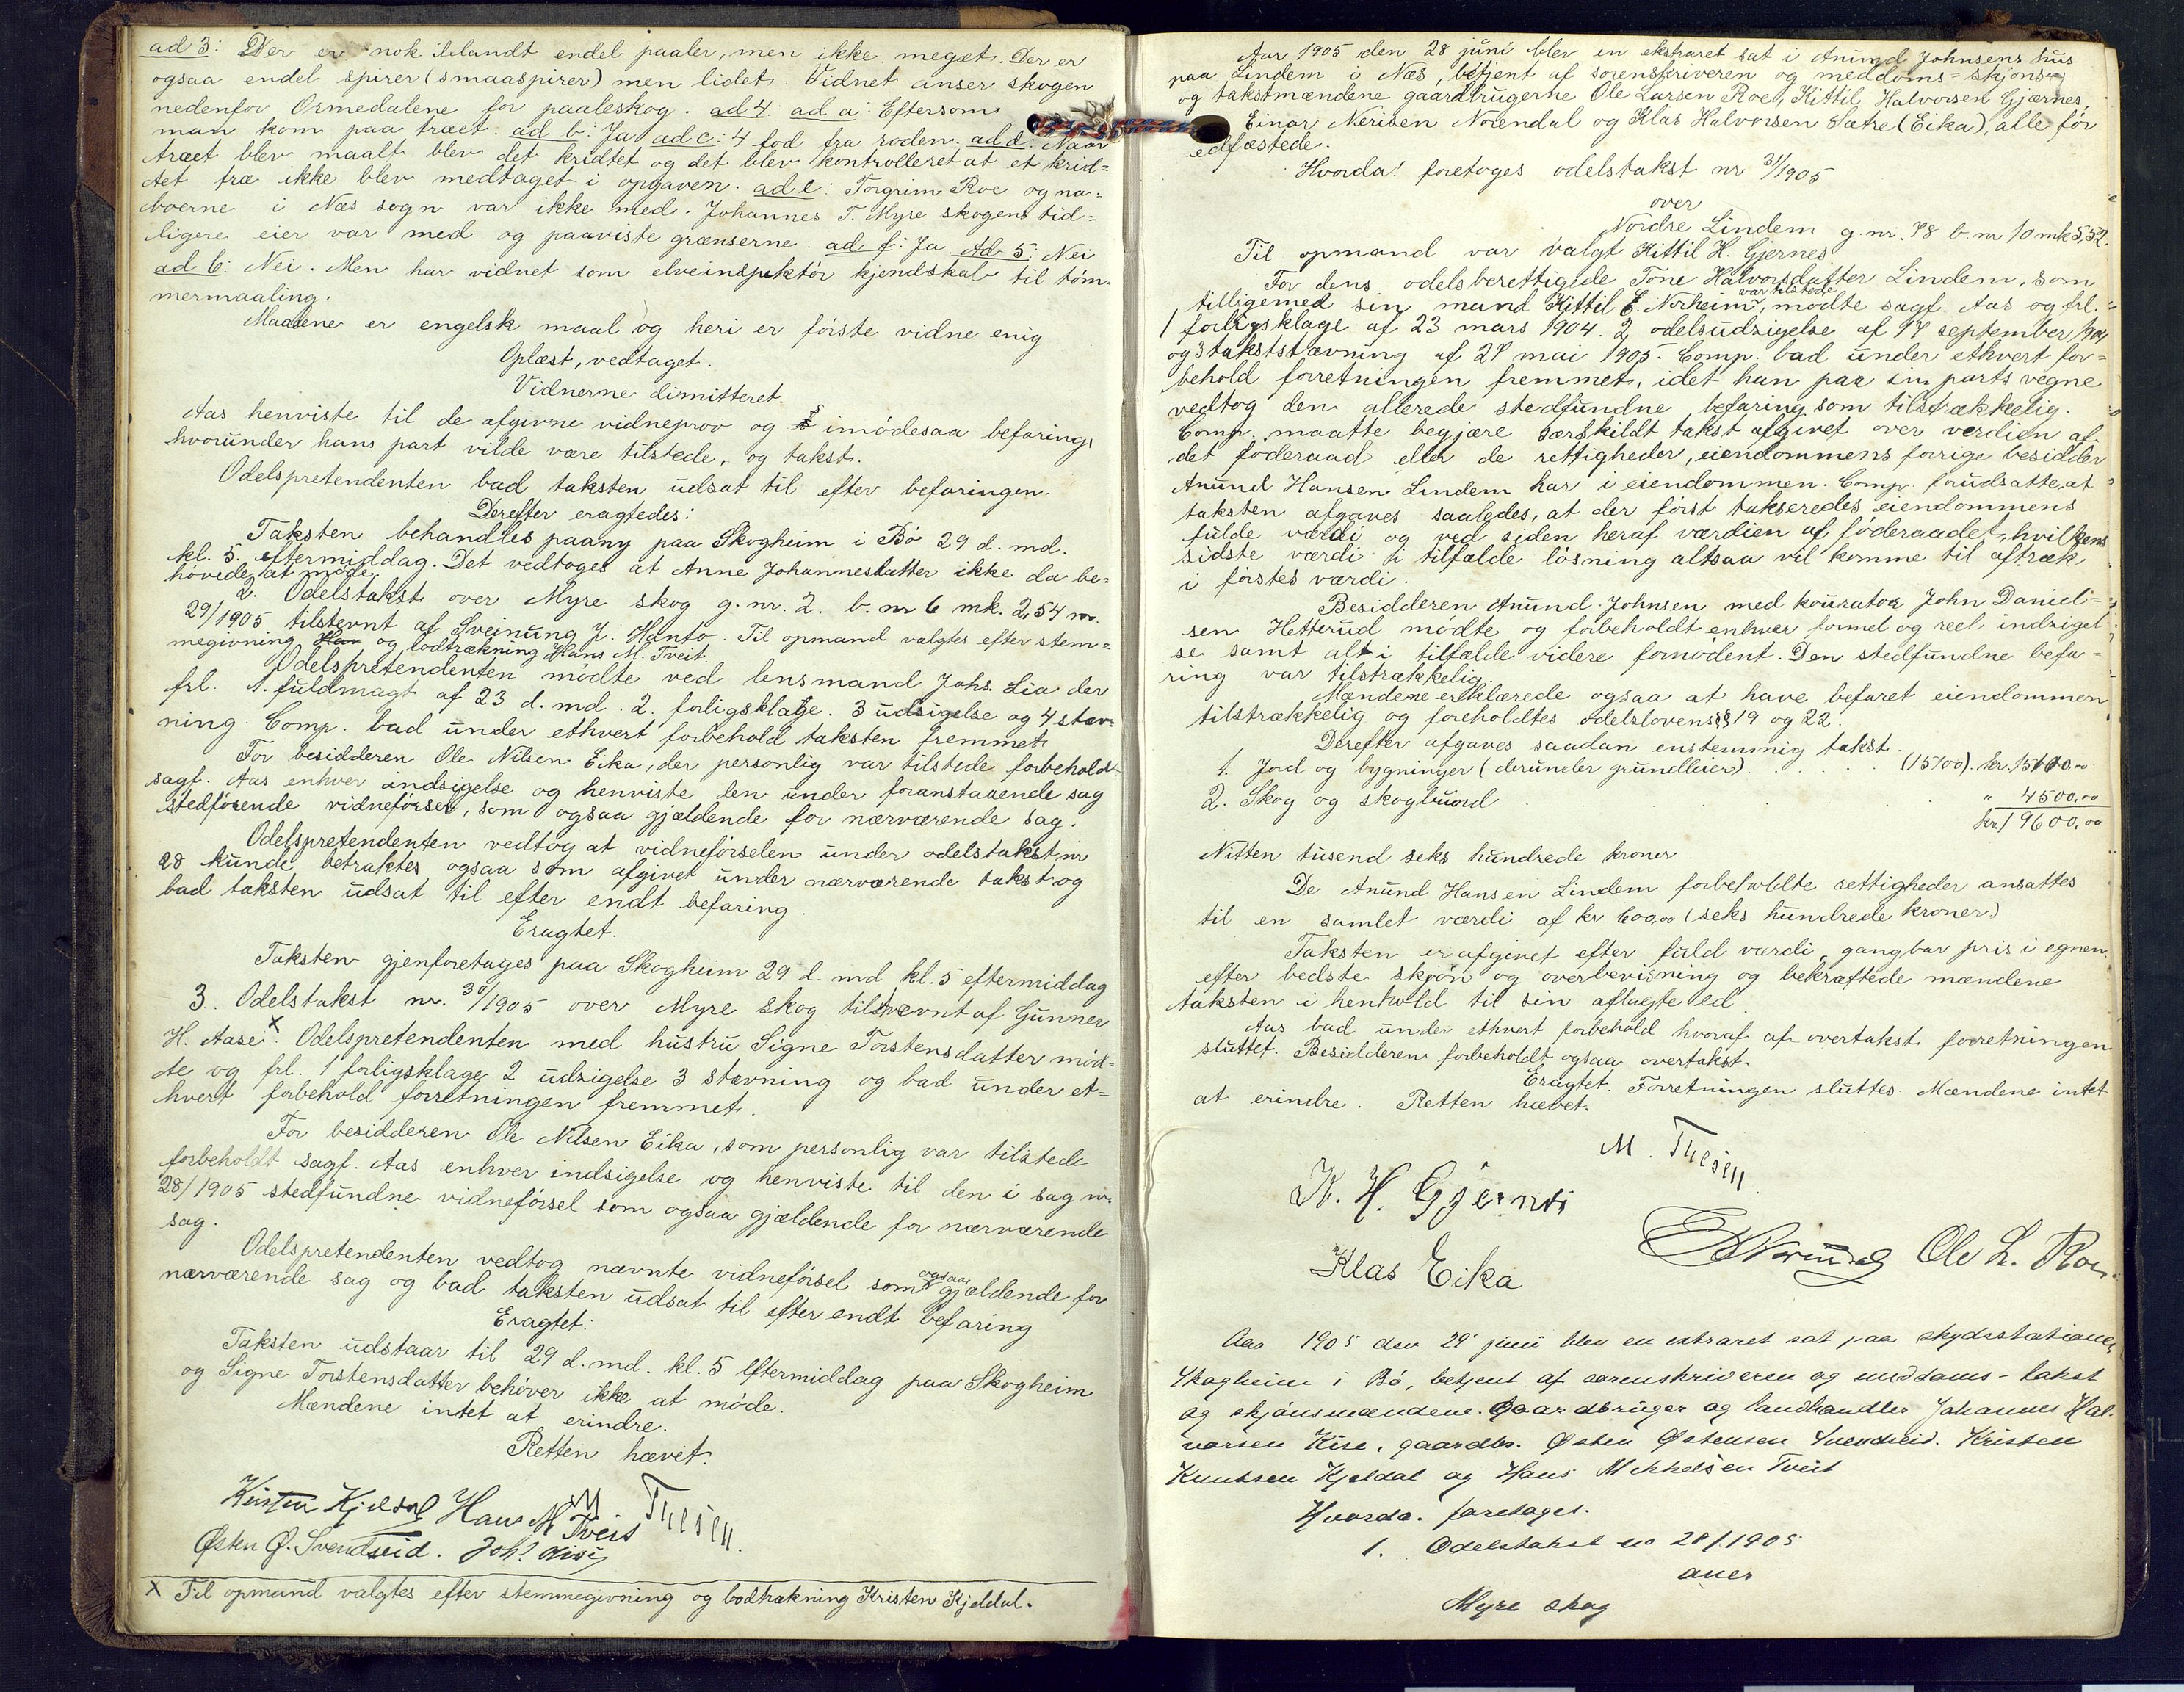 ad 3: Der er nok iblandt endel paaler, men ikke meget. Der er
ogsaa endel spirer (smaaspirer) men lidet. Vidnet anser skogen
nedenfor Ormedalene for paaleskog. ad 4: ad a: Eftersom
man kom paa træet. ad b: Ja ad c: 4 fod fra roden. ad d: Naar
træet blev maalt blev det kridtet og det blev kontrolleret at et krid-
tet træ ikke blev medtaget i opgaven. ad e: Torgrim Roe og na-
boerne i Næs sogn var ikke med. Johannes T. Myre skogens tid-
ligere eier var med og paaviste grænserne. ad f: Ja Ad 5: Nei
ad 6: Nei. Men har vidnet som elveinspektör kjendskab til töm-
mermaaling.
Maalene er engelsk maal og heri er förste vidne enig
Oplæst, vedtaget.
Vidnerne dimitteret.
Aas henviste til de afgivne vidneprov og imödesaa befaring,
hvorunder hans part vilde være tilstede, og takst.
Odelspretendenten bad taksten udsat til efter befaringen.
Derefter eragtedes:
Taksten behandles paany paa Skogheim i Bö 29 d. md.
kl. 5 eftermiddag. Det vedtoges at Anne Johannesdatter ikke da be-
hövede at möde.
2. Odelstakst over Myre skog g. nr. 2. b. nr 6 mk. 2,54 nr.
29/1905 tilstevnt af Sveinung J. Hanto. Til opmand valgtes efter stem-
megivning Han og lodtrækning Hans M. Tveit.
Odelspretendenten mödte ved lensmand Johs. Lia der
frl. 1. fuldmagt af 23 d. md. 2. forligsklage. 3 udsigelse og 4 stæv-
ning. Comp. bad under ethvert forbehold taksten fremmet
For besidderen Ole Nilsen Eika, der personlig var tilstede forbeholdt
sagf. Aas enhver indsigelse og henviste den under foranstaaende sag
stedförende vidneförsel, som ogsaa gjældende for nærværende sag.
Odelspretendenten vedtog at vidneförselen under odelstakst nr
28 kunde betraktes ogsaa som afgivet under nærværende takst og
bad taksten udsat til efter endt befaring.
Eragtet.
Taksten gjenforetages paa Skogheim 29 d. md kl. 5 eftermiddag
3. Odelstakst nr. 30/1905 over Myre skog tilstævnt af Gunner
H. Aase x. Odelspretendenten med hustru Signe Torstensdatter möd-
te og frl. 1 forligsklage 2 udsigelse 3 stævning og bad under et-
hvert forbehold forretningen fremmet.
For besidderen Ole Nilsen Eika, som personlig var tilstede
forbeholdt sagf. Aas enhver indsigelse og henviste til den i sag nr
28/1905 stedfundne vidneförsel som ogsaa gjældende for nærværende
sag.
Odelspretendenten vedtog nævnte vidneförsel som ogsaa gjældende for
nærværende sag og bad taksten udsat til efter endt befaring
Eragtet:
Taksten udstaar til 29 d. md. kl. 5 eftermiddag paa Skogheim
og Signe Torstensdatter behöver ikke at möde.
Mændene intet at erindre.
Retten hævet.
Kristen Kjeldal Hans M Tveit M Thesen.
Østen Ø. Svendseid. Joh
x Til opmand valgtes efter stemmegivning og lodtrækning Kristen Kjeldal.
Aar 1905 den 28 juni blev en ekstraret sat i Anund Johnsens hus
paa Lindem i Næs, betjent af sorenskriveren og meddoms- skjöns-
og takstmændene gaardbrugerne Ole Larsen Roe, Kittil Halvorsen Gjærnes,
Einar Nerisen Norendal og Klas Halvorsen Sætre (Eika), alle för
edfæstede.
Hvorda! foretoges odelstakst nr 31/1905
over
Nordre Lindem g. nr. 78 b. nr 10 mk 5,52.
Til opmand var valgt Kittil H. Gjernes
For dens odelsberettigede Tone Halvorsdatter Lindem, som
tilligemed sin mand Kittil E. Norheim var tilstede, mödte sagf. Aas og frl.
1 forligsklage af 23 mars 1904. 2 odelsudsigelse af 17 september 1904
og 3 takststævning af 27 mai 1905. Comp. bad under ethvert for-
behold forretningen fremmet, idet han paa sin parts vegne
vedtog den allerede stedfundne befaring som tilstrækkelig.
Comp. maatte begjære særskildt takst afgivet over verdien af
det föderaad eller de rettigheder, eiendommens forrige besidder
Anund Hansen Lindem har i eiendommen. Comp. forudsatte, at
taksten afgaves saaledes, at der först takseredes eiendommens
fulde værdi og ved siden heraf værdien af föderaadet, hvilken
sidste værdi i tilfælde lösning altsaa vil komme til aftræk
i förstes værdi.
Besidderen Anund Johnsen med kourator John Daniel-
sen Hetterud mödte og forbeholdt enhver formel og reel indsigel-
se samt alt i tilfælde videre fornödent. Den stedfundne befa-
ring var tilstrækkelig
Mændene erklærede ogsaa at have befaret eiendommen
tilstrækkelig og foreholdtes odelslovens §§ 19 og 22.
Derefter afgaves saadan enstemmig takst.
1. Jord og bygninger (derunder grundleier) . . . . . (15100). kr. 15100.00
2. Skog og skogbund . . . " 4500,00
kr. 19600,00
Nitten tusend seks hundrede kroner
De Anund Hansen Lindem forbeholdte rettigheder ansattes
til en samlet værdi af kr 600,00 (seks hundrede kroner)
Taksten er afgivet efter fuld værdi, gangbar pris i egnen
efter bedste skjön og overbevisning og bekræftede mændene
taksten i henhold til sin aflagte ed.
Aas bad under ethvert forbehold hvoraf af overtakst forretningen
sluttet. Besidderen forbeholdt ogsaa overtakst.
Eragtet. Forretningen sluttes. Mændene intet
at erindre. Retten hævet.
M. Thesen.
K. H. Gjernes
E Norendal Ole L. Roe
Klas Eika
Aar 1905 den 29 juni blev en extraret sat paa skydsstationen
Skogheim i Bö, betjent af sorenskriveren og meddoms- takst
og skjönsmændene. Gaardbruger og landhandler Johannes Hal-
vorsen Kise, gaardbr. Østen Østensen Svendseid. Kristen
Knutsen Kjeldal og Hans Mikkelsen Tveit
Hvorda. foretages.
1. Odelstakst no 28/1905
over
Myre skog